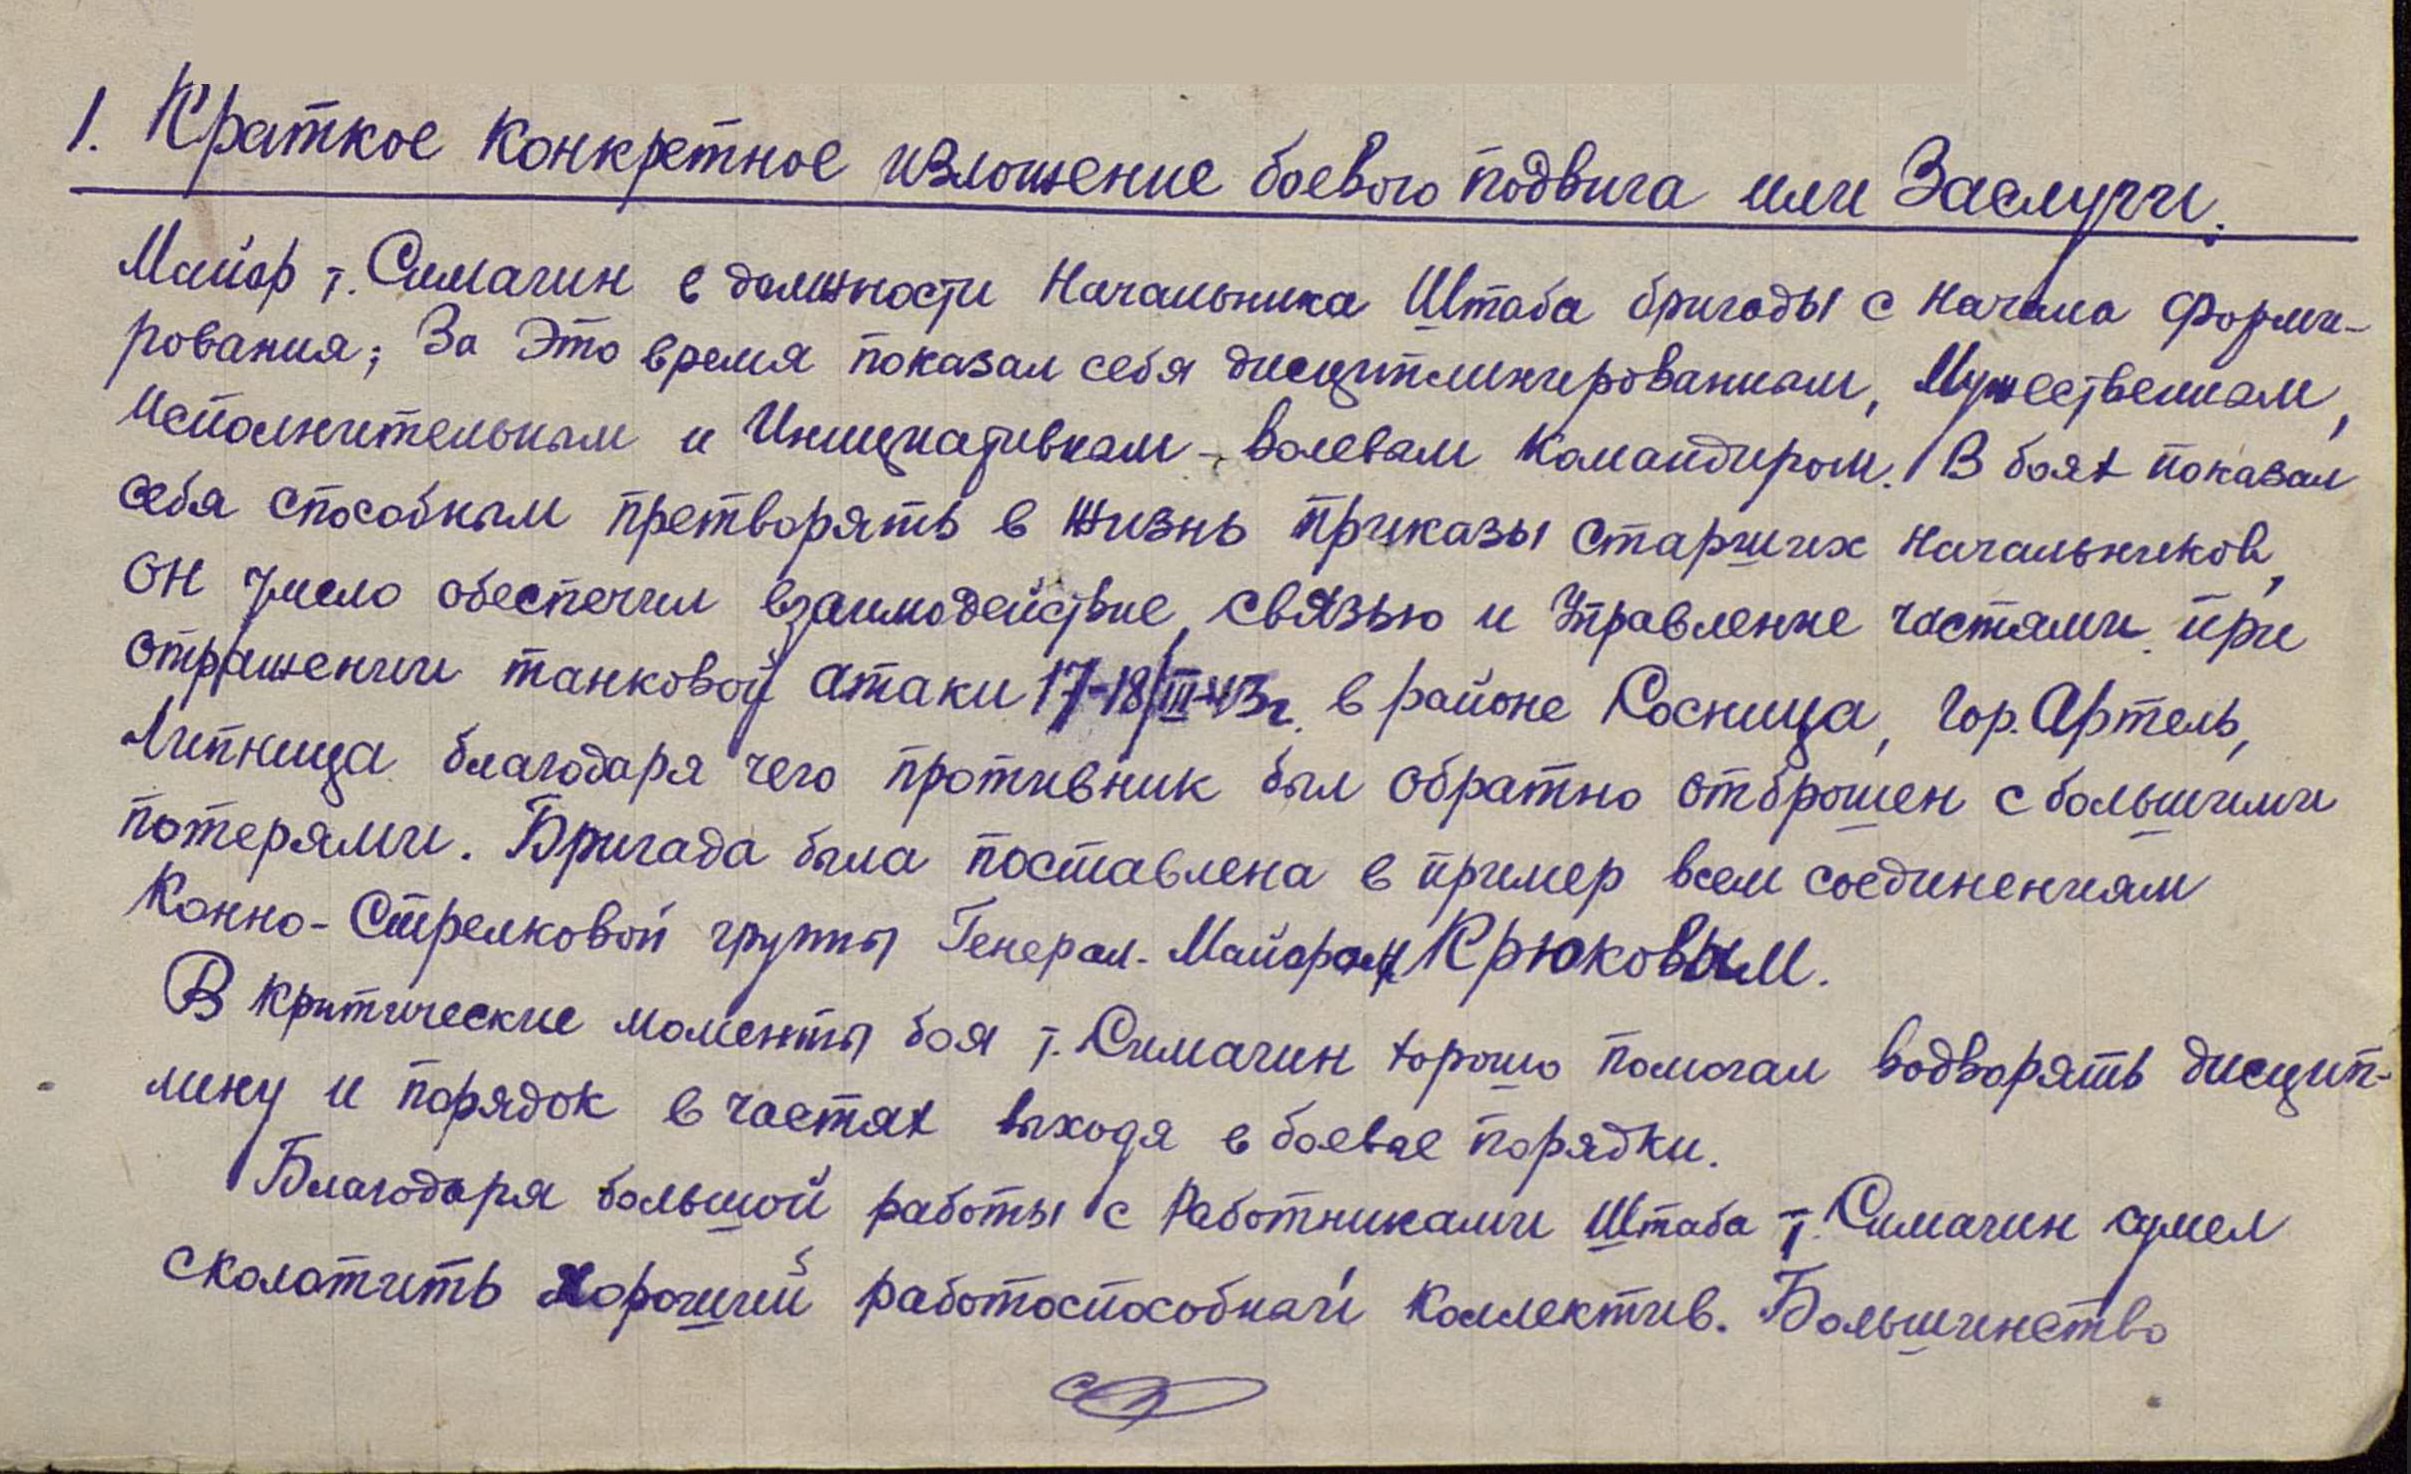 1. Краткое конкретное изложение боевого подвига или Заслуги.
Майор т. Симагин в должности Начальника Штаба бригады с начала форми-
рования; За Это время показал себя дисциплинированным, Мужественным,
Исполнительным и Инициативным - волевым командиром. В боях показал
себя способным претворять в жизнь приказы старших начальников,
он умело обеспечил взаимодействие, связью и Управление частями при
отражении танковой атаки 17-18/III-43г. в районе Сосница, Гор. Артель,
Липница благодаря чего противник был обратно отброшен с большими
потерями. Бригада была поставлена в пример всем соединениям
Конно-Стрелковой группы Генерал-Майором Крюковым.
В критические моменты боя т. Симагин хорошо помогал водворять дисцип-
лину и порядок в частях выходя в боевые порядки.
Благодаря большой работы с Работниками Штаба т. Симагин сумел
сколотить хороший работоспособный коллектив. Большинство